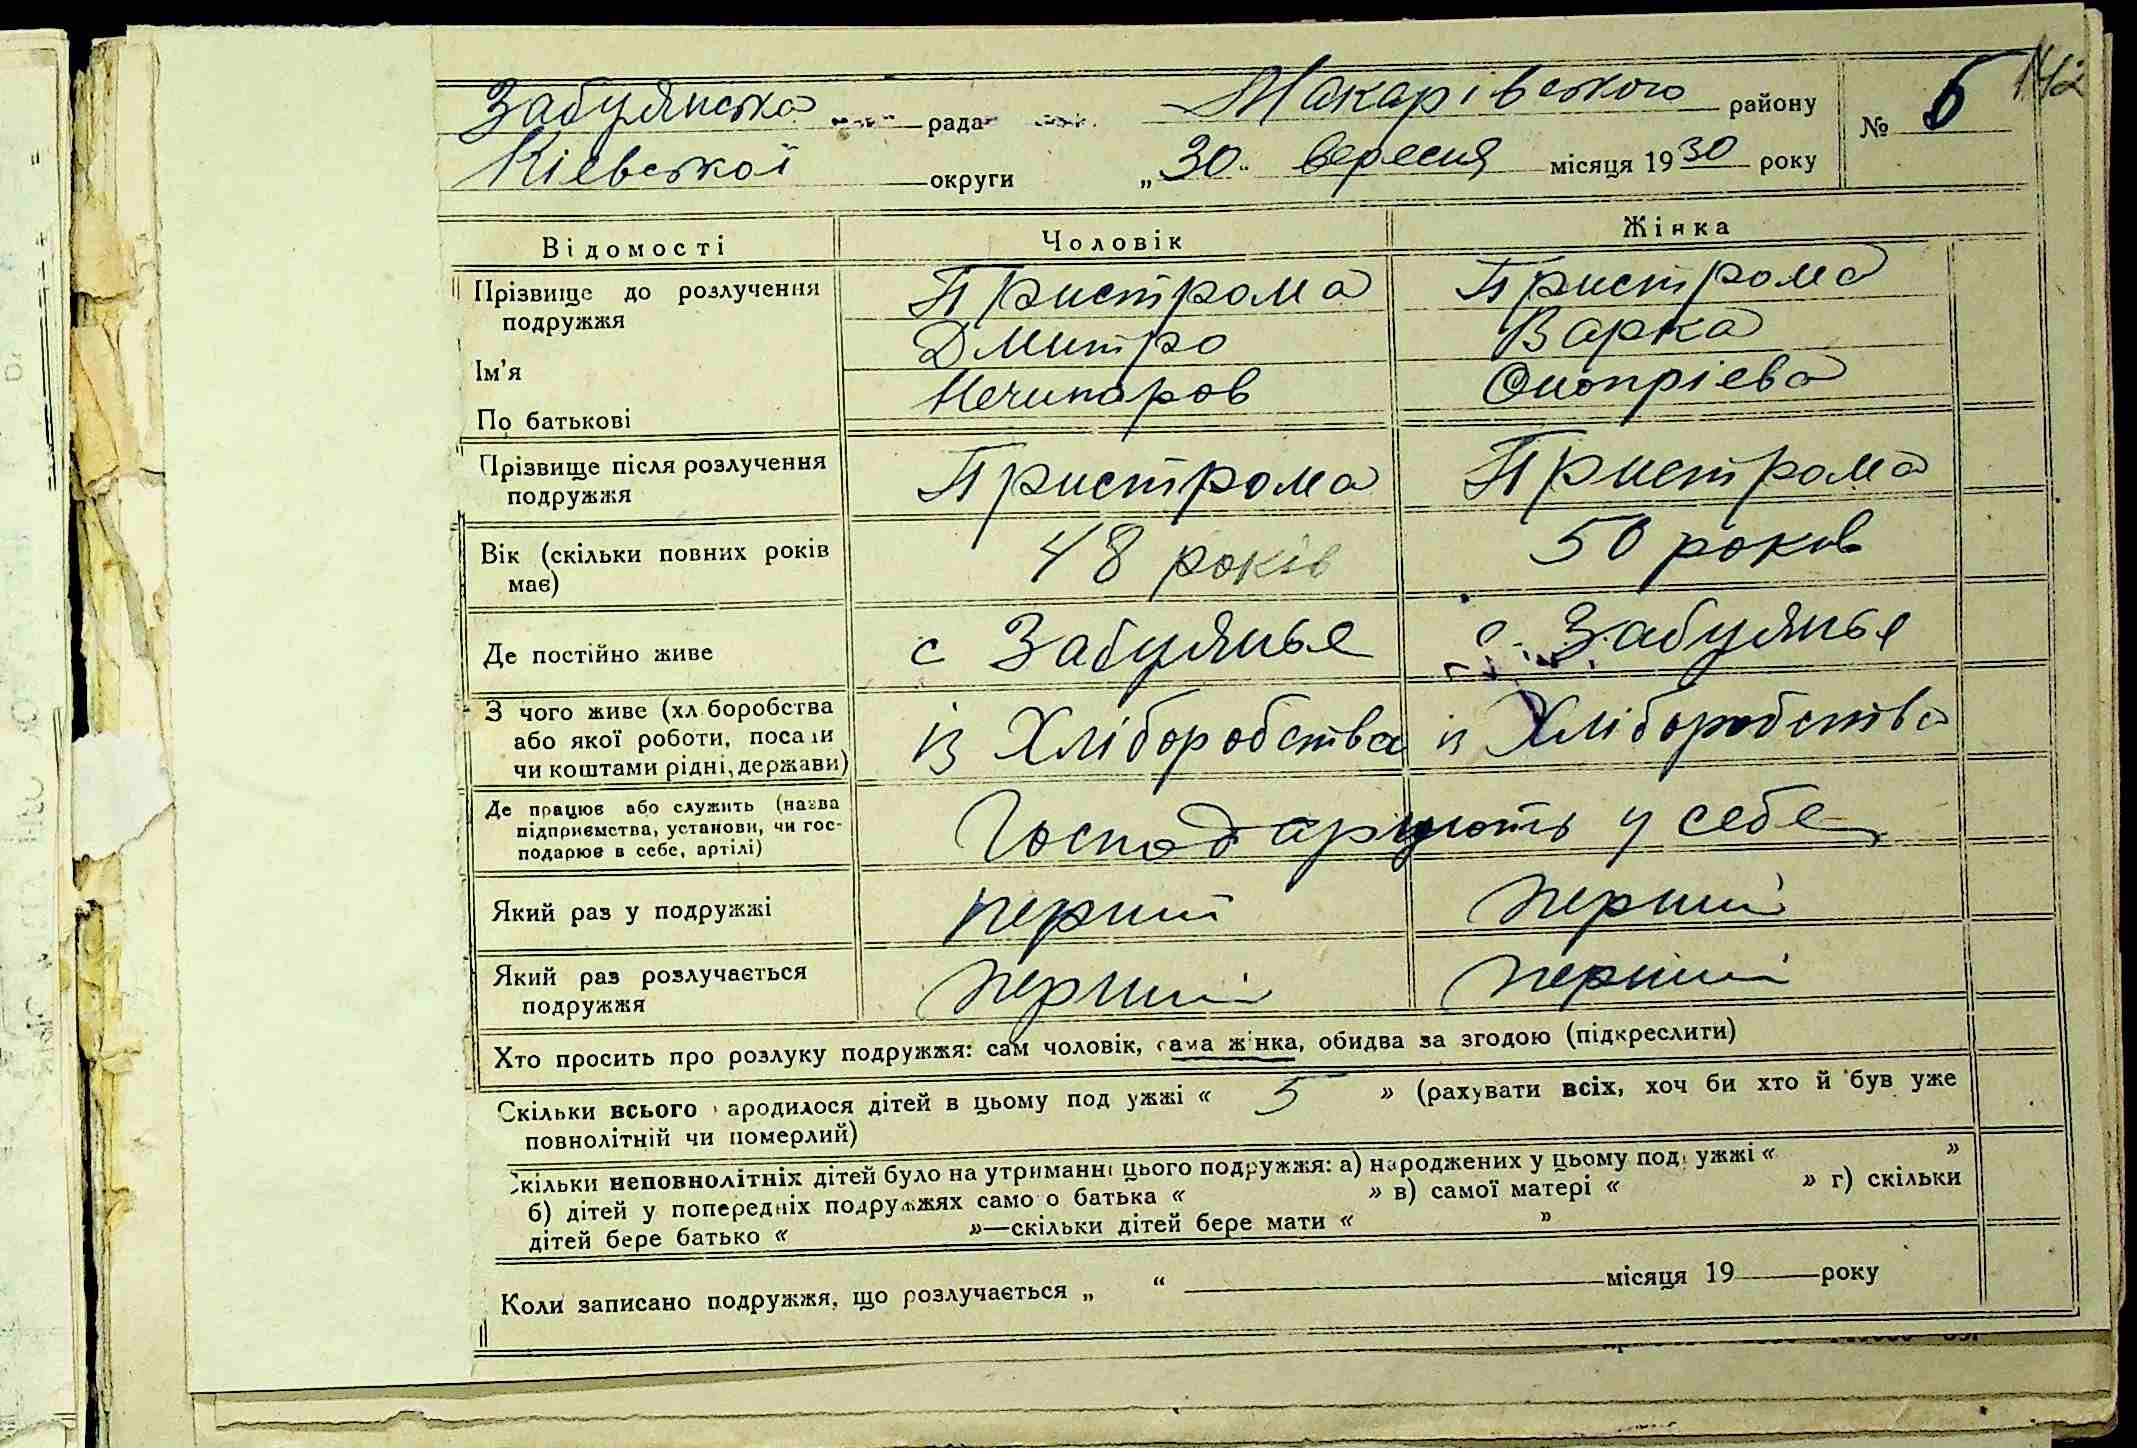 Забулянська рада Макарівського району № 6 142
Кіевської округи „30“ вересня місяця 1930 року
Відомості Чоловік Жінка
Прізвище до розлучення Пристрома Пристрома
подружжя
Ім’я Дмитро Варка
По батькові Нечипоров Онопріева
Прізвище після розлучення Пристрома Пристрома
подружжя
Вік (скільки повних років 48 років 50 років
має)
Де постійно живе с Забуянье с. Забуянье
З чого живе (хліборобства із Хліборобства із Хліборобства
або якої роботи, посади
чи коштами рідні, держави)
Де працює або служить (назва Господарюють у себе
підприємства, установи, чи гос-
подарює в себе, артілі)
Який раз у подружжі перший перший
Який раз розлучається перший перший
подружжя
Хто просить про розлуку подружжя: сам чоловік, сама жінка, обидва за згодою (підкреслити)
Скільки всього народилося дітей в цьому подружжі « 5 » (рахувати всіх, хоч би хто й був уже
повнолітній чи померлий)
Скільки неповнолітніх дітей було на утриманні цього подружжя: а) народжених у цьому подружжі « »
б) дітей у попередніх подружжях самого батька « » в) самої матері « » г) скільки
дітей бере батько « »—скільки дітей бере мати « »
Коли записано подружжя, що розлучається „ “ місяця 19 року